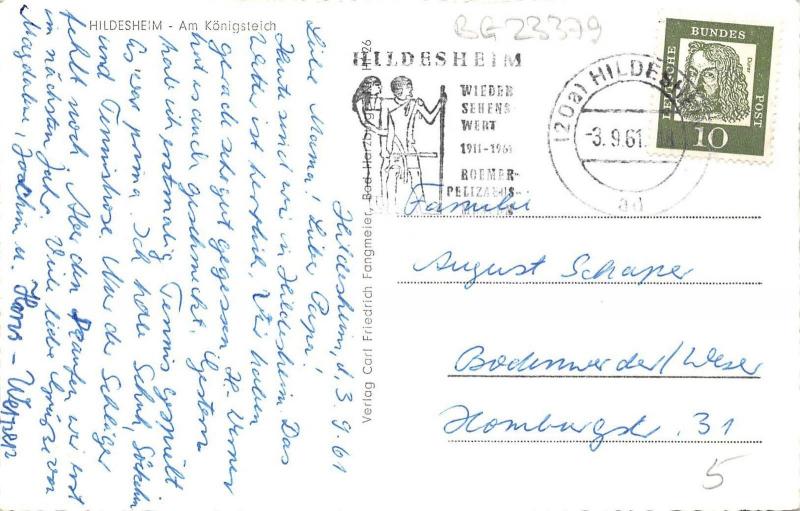 HILDESHEIM - Am Königsteich
BG 23379
HILDESHEIM
WIEDER
SEHENS-
WERT
1911-1961
ROEMER-
PELIZAEUS-
(20a) HILDESHEIM
-3.9.61.
ad
DEUTSCHE BUNDESPOST
Dürer
10
Hildesheim, d. 3.9.61
Liebe Mama! Lieber Papa!
Heute sind wir in Hildesheim. Das
ist herrlich. Wir haben
gerade sehr gut gegessen. H.-Werner
hat es auch geschmeckt. Gestern
hab ich erstmalig Tennis gespielt
Es war prima. Ich hatte Schuh, Söckchen
und Tennishose. Nur der Schläger
fehlt noch. Aber den kaufen wir erst
im nächsten Jahr. Viele liebe Grüße von
Magdalene, Joachim u. Hans-Werner
Verlag Carl Friedrich Fangmeier, Bad Harzburg
Familie
August Schaper
Bodenwerder/Weser
Homburgstr. 31
5